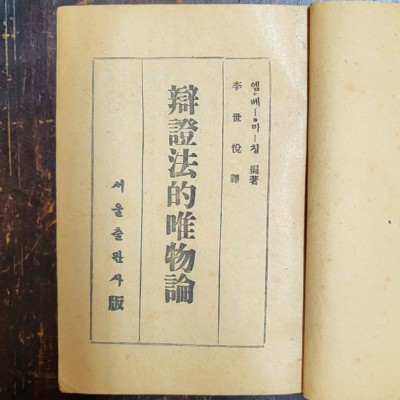 엠·베—·마—친 編著
李世悅 譯
辯證法的唯物論
서울출판사版